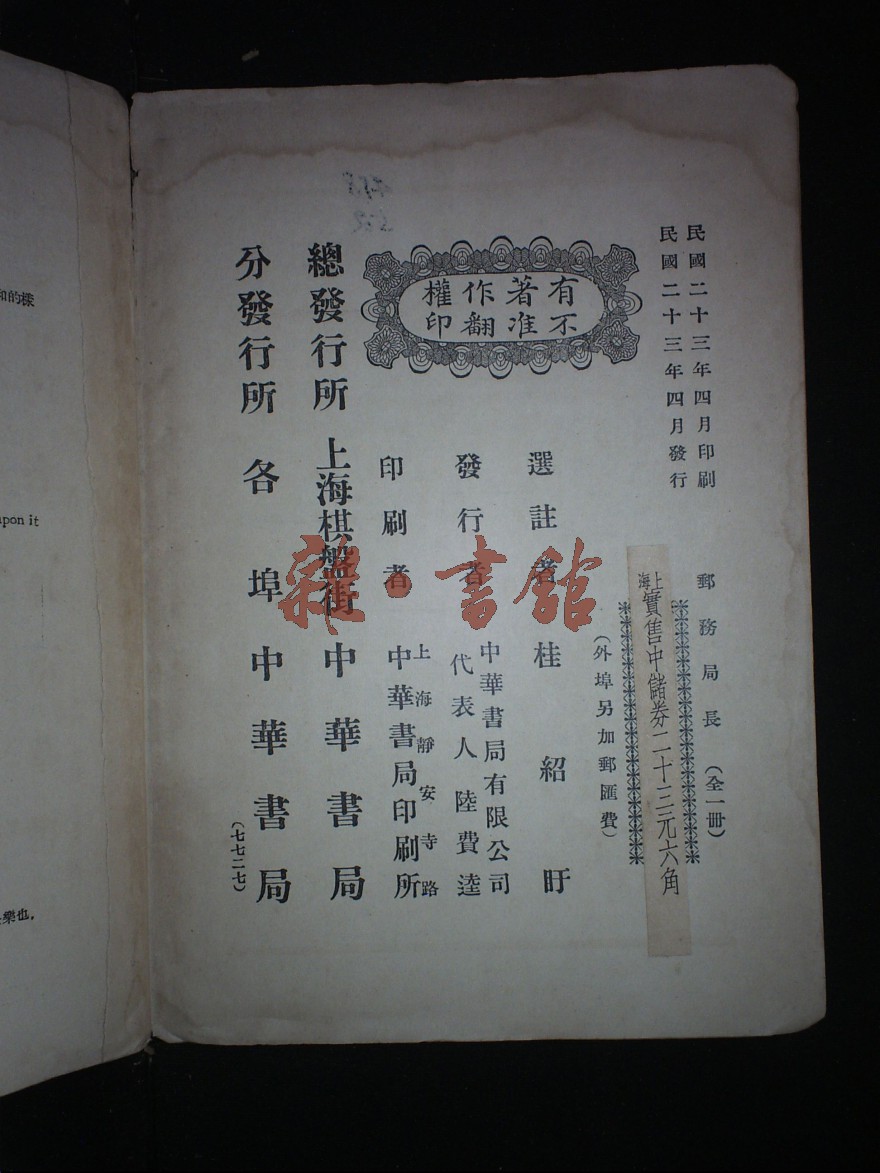 民國二十三年四月印刷
民國二十三年四月發行
郵務局長(全一冊)
上海實售中儲券二十三元六角
(外埠另加郵匯費)
有著作權
不准翻印
選註者 桂紹盱
發行者 中華書局有限公司
代表人 陸費逵
印刷者 上海靜安寺路
中華書局印刷所
總發行所 上海棋盤街 中華書局
分發行所 各埠 中華書局
(七七二七)
和的樣
upon it
樂也,
雜·書館